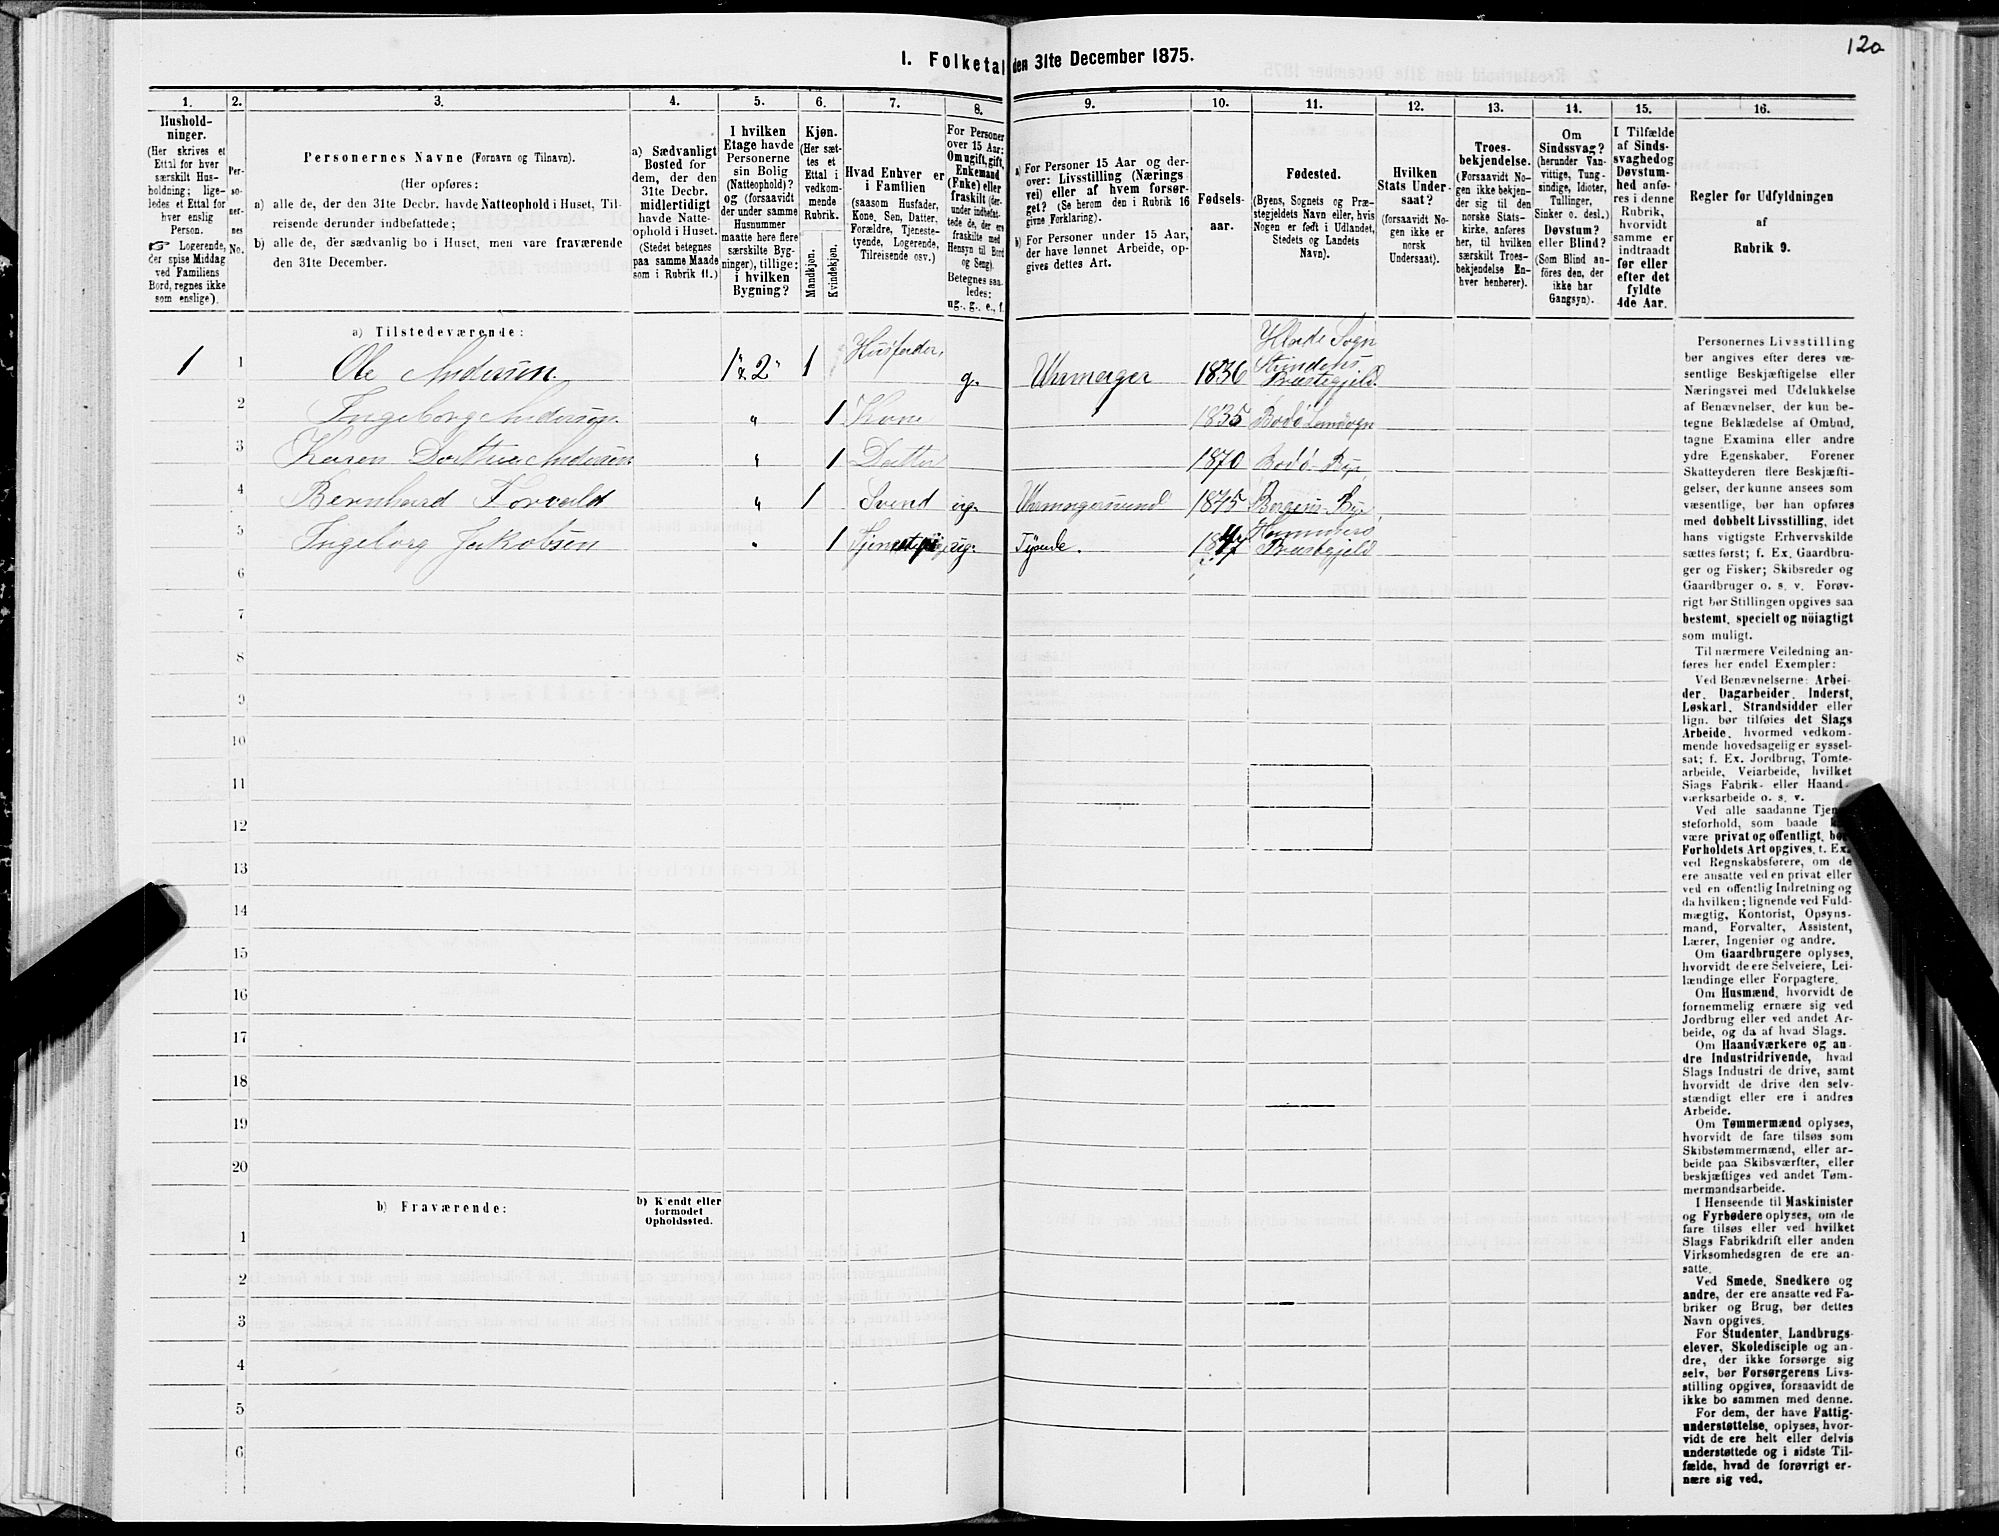 12a
1. Folketal den 31te December 1875.
1. 2. 3. 4. 5. 6. 7. 8. 9. 10. 11. 12. 13. 14. 15. 16.
Hushold-
ninger.
(Her skrives et
Ettal for hver
særskilt Hus-
holdning; lige-
ledes et Ettal for
hver enslig
Person.
☞ Logerende,
der spise Middag
ved Familiens
Bord, regnes ikke
som enslige).
Per-
so-
ner-
nes
No.
Personernes Navne (Fornavn og Tilnavn).
(Her opføres:
a) alle de, der den 31te Decbr. havde Natteophold i Huset, Til-
reisende derunder indbefattede;
b) alle de, der sædvanlig bo i Huset, men vare fraværende
den 31te December.
a) Sædvanligt
Bosted for
dem, der den
31te Decbr.
midlertidigt
havde Natte-
ophold i Huset.
(Stedet betegnes
paa samme Maade
som i Rubrik 11.)
I hvilken
Etage havde
Personerne
sin Bolig
(Natteophold)?
og (forsaavidt
der under samme
Husnummer
maatte høre flere
særskilte Byg-
ninger), tillige:
i hvilken
Bygning?
Kjøn.
(Her sæt-
tes et
Ettal i
vedkom-
mende
Rubrik.
Mandkjøn.
Kvindekjøn.
Hvad Enhver er
i Familien
(saasom Husfader,
Kone, Søn, Datter,
Forældre, Tjeneste-
tyende, Logerende,
Tilreisende osv.)
For Personer
over 15 Aar:
Om ugift, gift,
Enkemand
(Enke) eller
fraskilt (der-
under indbefat-
tede de, der ere
fraskilte med
Hensyn til Bord
og Seng).
Betegnes saa-
ledes:
ug., g., e., f.
a) For Personer 15 Aar og der-
over: Livsstilling (Nærings-
vei) eller af hvem forsør-
get? (Se herom den i Rubrik 16
givne Forklaring).
b) For Personer under 15 Aar,
der have lønnet Arbeide, op-
gives dettes Art.
Fødsels-
aar.
Fødested.
(Byens, Sognets og Præ-
stegjeldets Navn eller, hvis
Nogen er født i Udlandet,
Stedets og Landets
Navn).
Hvilken
Stats Under-
saat?
(forsaavidt No-
gen ikke er
norsk
Undersaat).
Troes-
bekjendelse.
(Forsaavidt No-
gen ikke bekjen-
der sig til den
norske Stats-
kirke, anføres
her, til hvilken
særskilt Troes-
bekjendelse En-
hver henhører).
Om
Sindssvag?
(herunder Van-
vittige, Tung-
sindige, Idioter,
Tullinger,
Sinker o. desl.)
Døvstum?
eller Blind?
(Som Blind an-
føres den, der
ikke har
Gangsyn).
I Tilfælde
af Sinds-
svaghed og
Døvstum-
hed anfø-
res i denne
Rubrik,
hvorvidt
samme er
indtraadt
før eller
efter det
fyldte
4de Aar.
Regler for Udfyldningen
af
Rubrik 9.
a) Tilstedeværende:
1 1 Ole Andersen 1 & 2 1 Husfader, g. Uhrmager 1836 Hlade Sogn Strindens Præstegjeld.
2 Ingeborg Andersen " 1 Kone 1835 Bodø Landsogn
3 Karen Dorthea Andersen " 1 Datter 1870 Bodø By,
4 Bernhard Torvald " 1 Svend ug. Uhrmagersvend 1845 Bergens By,
5 Ingeborg Jakobsen " 1 ug. Tyende. Hammerø Præstegjeld
6
7
8
9
10
11
12
13
14
15
16
17
18
19
20
b) Fraværende:
b) Kjendt eller
formodet
Opholdssted.
1
2
3
4
5
6
Personernes Livsstilling
bør angives efter deres væ-
sentlige Beskjæftigelse eller
Næringsvei med Udelukkelse
af Benævnelser, der kun be-
tegne Beklædelse af Ombud,
tagne Examina eller andre
ydre Egenskaber. Forener
Skatteyderen flere Beskjæfti-
gelser, der kunne ansees som
væsentlige, bør han opføres
med dobbelt Livsstilling, idet
hans vigtigste Erhvervskilde
sættes først; f. Ex. Gaardbru-
ger og Fisker; Skibsreder og
Gaardbruger o. s. v. Forøv-
rigt bør Stillingen opgives saa
bestemt, specielt og nöiagtigt
som muligt.
Til nærmere Veiledning an-
føres her endel Exempler:
Ved Benævnelserne: Arbei-
der, Dagarbeider, Inderst,
Løskarl, Strandsidder eller
lign. bør tilføies det Slags
Arbeide, hvormed vedkom-
mende hovedsagelig er syssel-
sat; f. Ex. Jordbrug, Tomte-
arbeide, Veiarbeide, hvilket
Slags Fabrik- eller Haand-
værksarbeide o. s. v.
Ved alle saadanne Tjene-
steforhold, som baade
være privat og offentligt, bør
Forholdets Art opgives, t. Ex.
ved Regnskabsførere, om de
ere ansatte ved en privat eller
ved en offentlig Indretning og
da hvilken; lignende ved Fuld-
mægtig, Kontorist, Opsyns-
mand, Forvalter, Assistent,
Lærer, Ingeniør og andre.
Om Gaardbrugere oplyses,
hvorvidt de ere Selveiere, Lei-
lændinge eller Forpagtere.
Om Husmænd, hvorvidt de
fornemmelig ernære sig ved
Jordbrug eller ved andet Ar-
beide, og da af hvad Slags.
Om Haandværkere og an-
dre Industridrivende, hvad
Slags Industri de drive, samt
hvorvidt de drive den selv-
stændigt eller ere i andres
Arbeide.
Om Tømmermænd oplyses,
hvorvidt de fare tilsøs som
Skibstømmermænd, eller ar-
beide paa Skibsværfter, eller
beskjæftiges ved andet Tøm-
mermandsarbeide.
I Henseende til Maskinister
og Fyrbødere oplyses, om de
fare tilsøs eller ved hvilket
Slags Fabrikdrift eller anden
Virksomhedsgren de ere an-
satte.
Ved Smede, Snedkere og
andre, der ere ansatte ved Fa-
briker og Brug, bør dettes
Navn opgives.
For Studenter, Landbrugs-
elever, Skoledisciple og an-
dre, der ikke forsørge sig
selv, bør Forsørgerens Livs-
stilling opgives, forsaavidt de
ikke bo sammen med denne.
For dem, der have Fattig-
understøttelse, oplyses, hvor-
vidt de ere helt eller delvis
understøttede og i sidste Til-
fælde, hvad de forøvrigt er-
nære sig ved.